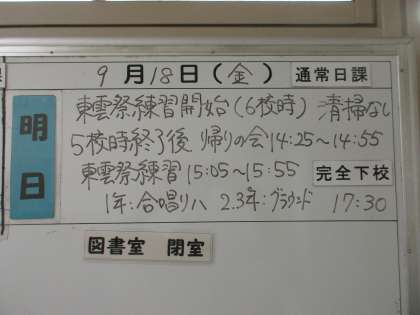 9月18日(金) 通常日課
明日
東雲祭練習開始(6校時) 清掃なし
5校時終了後 帰りの会14:25～14:55
東雲祭練習15:05～15:55 完全下校
1年:合唱リハ 2.3年:グラウンド 17:30
図書室 閉室